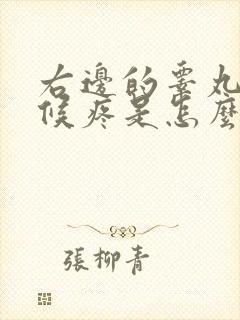 右邊的睪丸
候疼是怎麼
張柳青